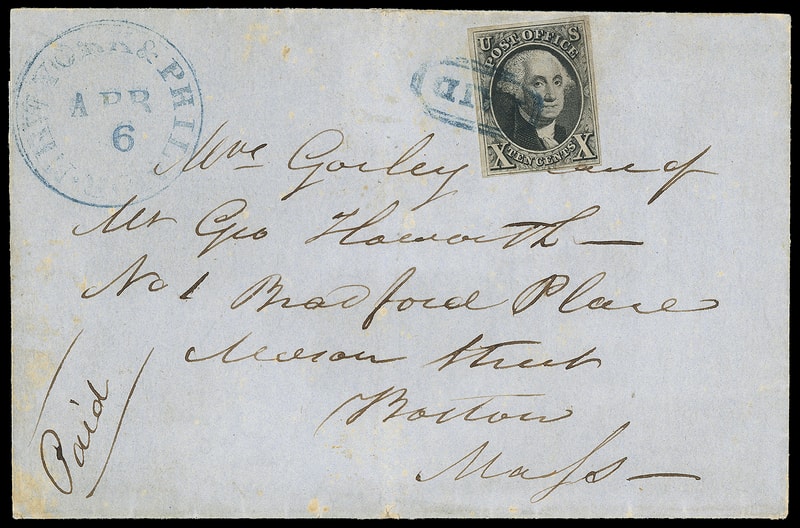 NEW YORK & PHIL
APR
6
U S
POST OFFICE
X TEN CENTS X
Mrs Gorley
Mr Geo Howorth —
No 1 Bradford Place
Mason Street
Boston
Mass —
Paid